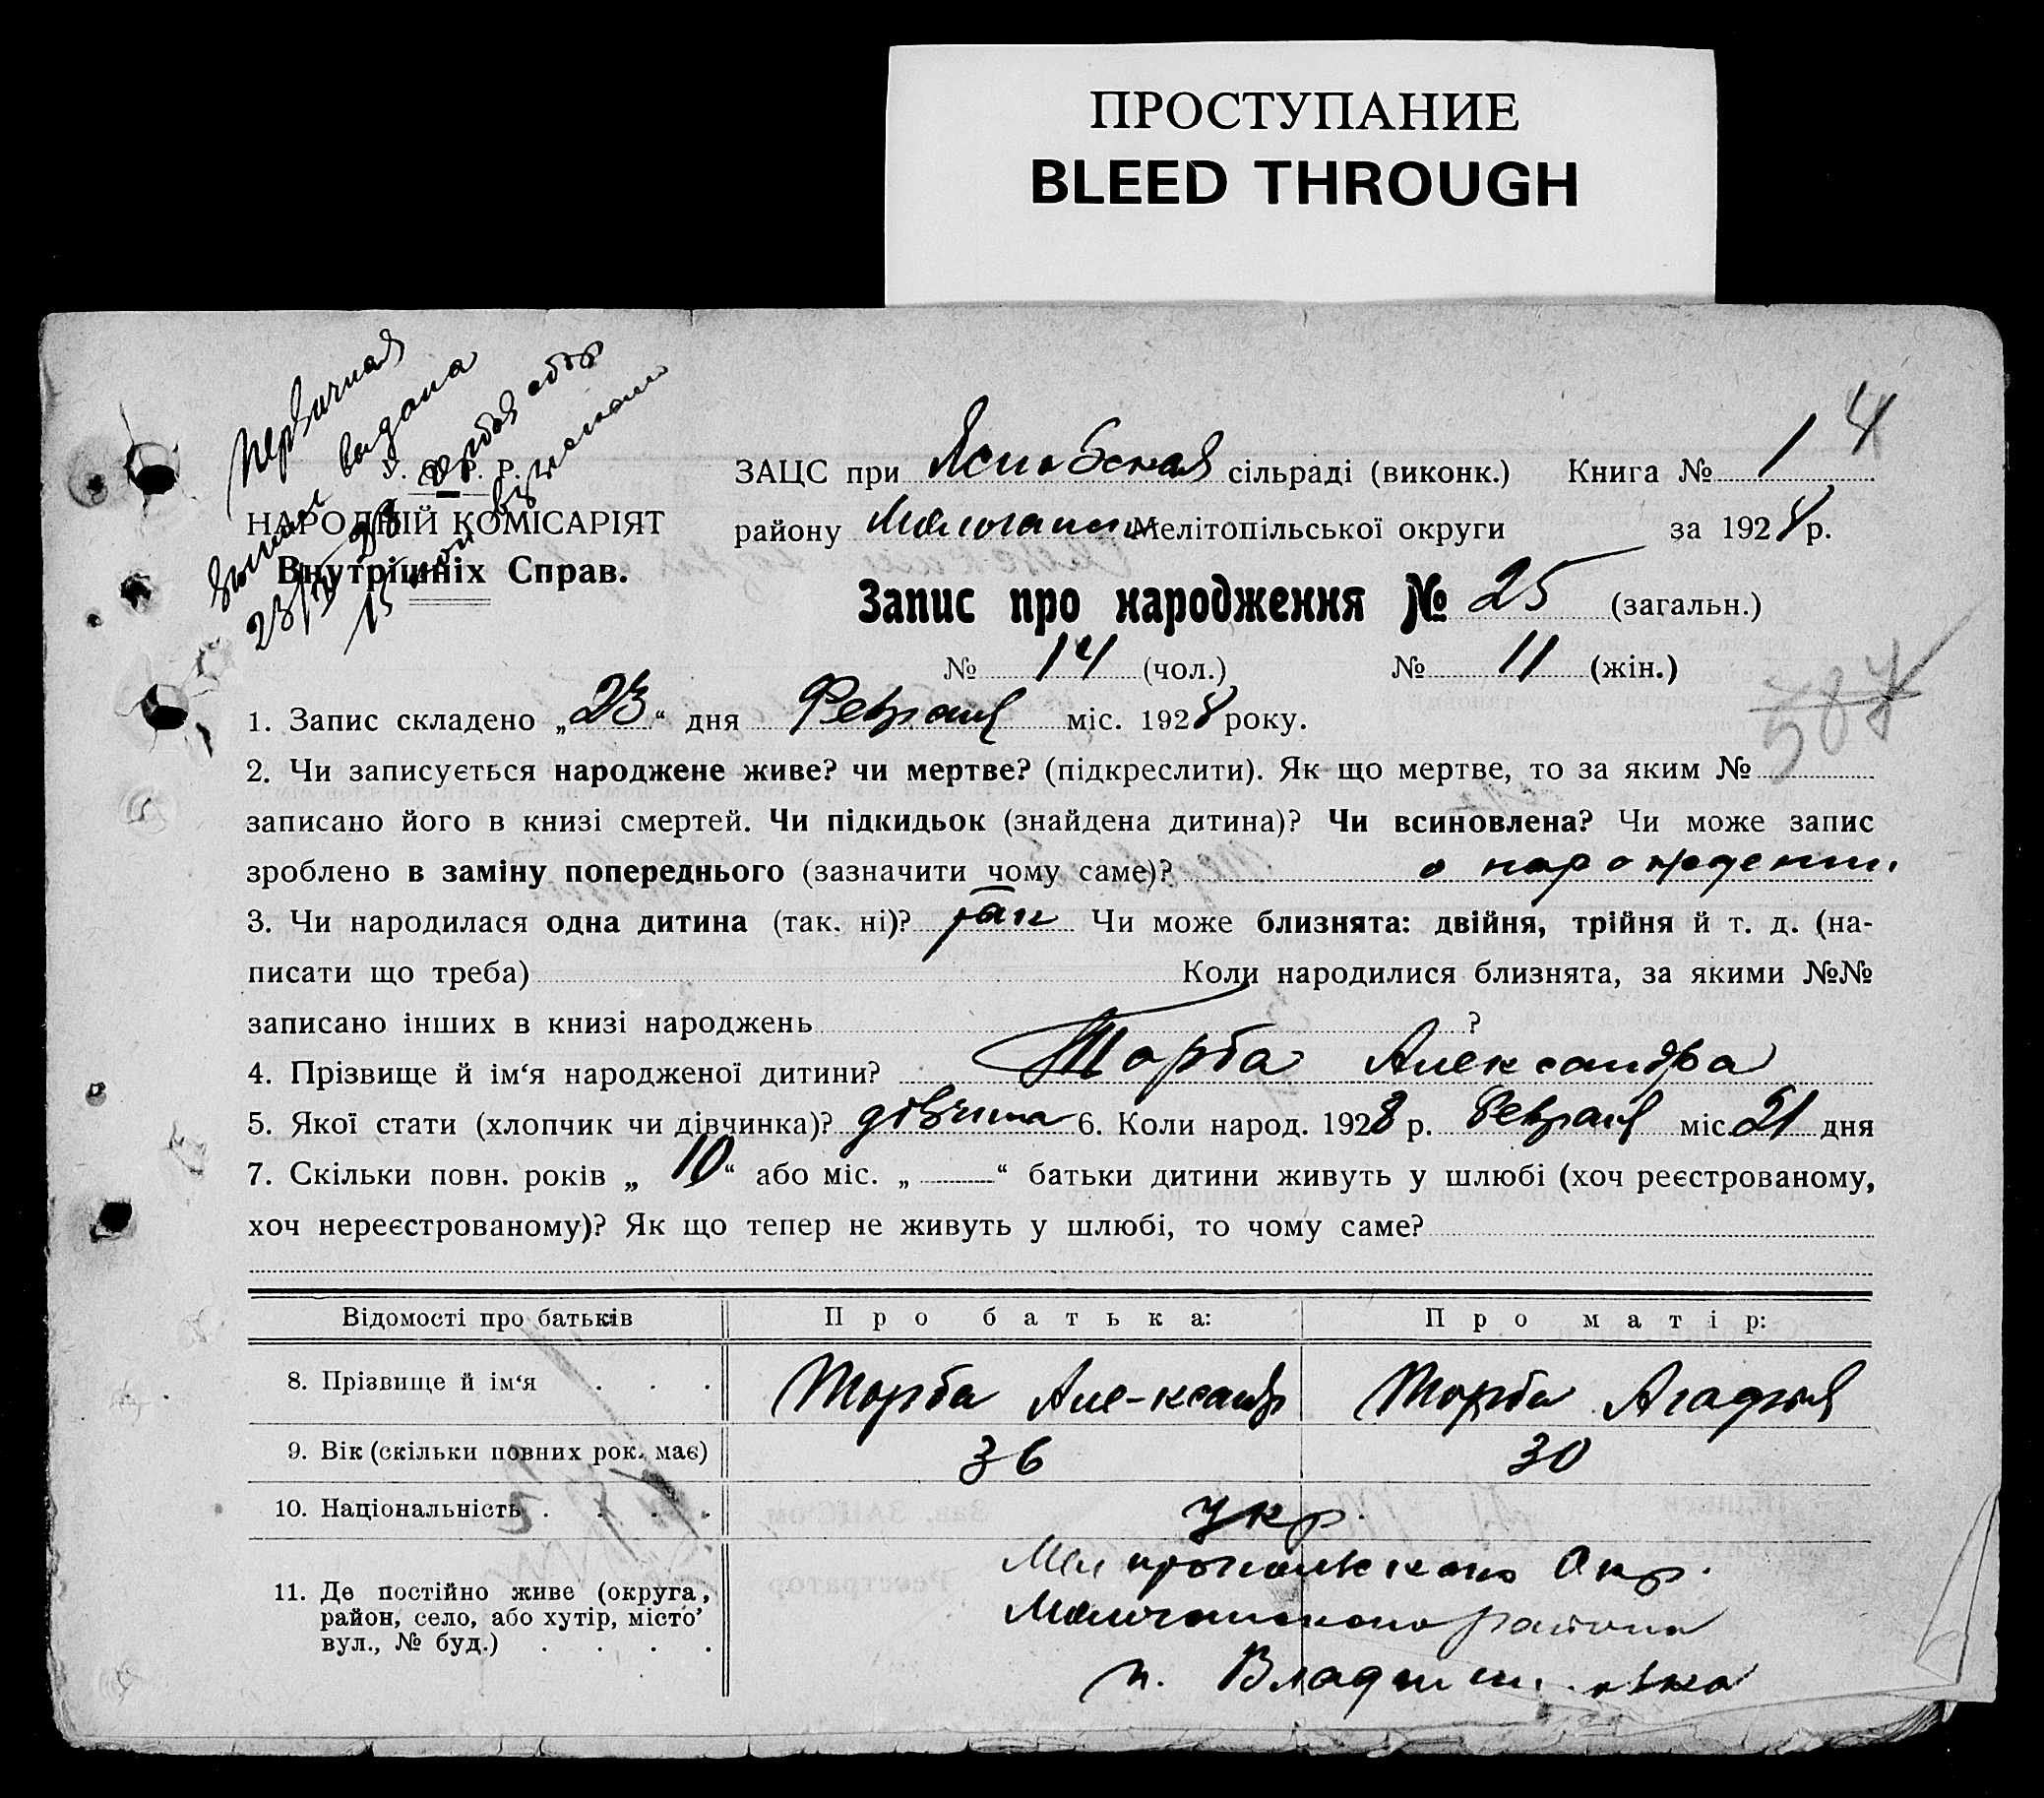 ПРОСТУПАНИЕ
BLEED THROUGH
Первичная
выдана
У. С. Р. Р.
НАРОДНІЙ КОМІСАРІЯТ
Внутрішніх Справ.
ЗАЦС при сільраді (виконк.) Книга № 1 4
району Мелітопільської округи за 1928 р.
Запис про народження № 25 (загальн.)
№ 14 (чол.) № 11 (жін.)
587
1. Запис складено „23“ дня Февраля міс. 1928 року.
2. Чи записується народжене живе? чи мертве? (підкреслити). Як що мертве, то за яким №
записано його в книзі смертей. Чи підкидьок (знайдена дитина)? Чи всиновлена? Чи може запис
зроблено в заміну попереднього (зазначити чому саме)? о нарождении.
3. Чи народилася одна дитина (так. ні)? так Чи може близнята: двійня, трійня й т. д. (на-
писати що треба) Коли народилися близнята, за якими №№
записано інших в книзі народжень ?
4. Прізвище й ім‘я народженої дитини? Торба Александра
5. Якої стати (хлопчик чи дівчинка)? дівчина 6. Коли народ. 1928 р. Февраля міс. 21 дня
7. Скільки повн. років „10“ або міс. „ “ батьки дитини живуть у шлюбі (хоч реєстрованому,
хоч нереєстрованому)? Як що тепер не живуть у шлюбі, то чому саме?
Відомості про батьків Про батька: Про матір:
8. Прізвище й ім‘я . . . Торба Але-ксандр Торба Агафия
9. Вік (скільки повних рок. має) 36 30
10. Національність . . . . укр.
11. Де постійно живе (округа, район, село, або хутір, місто’ вул., № буд.) . . . . Окр.
района
п.